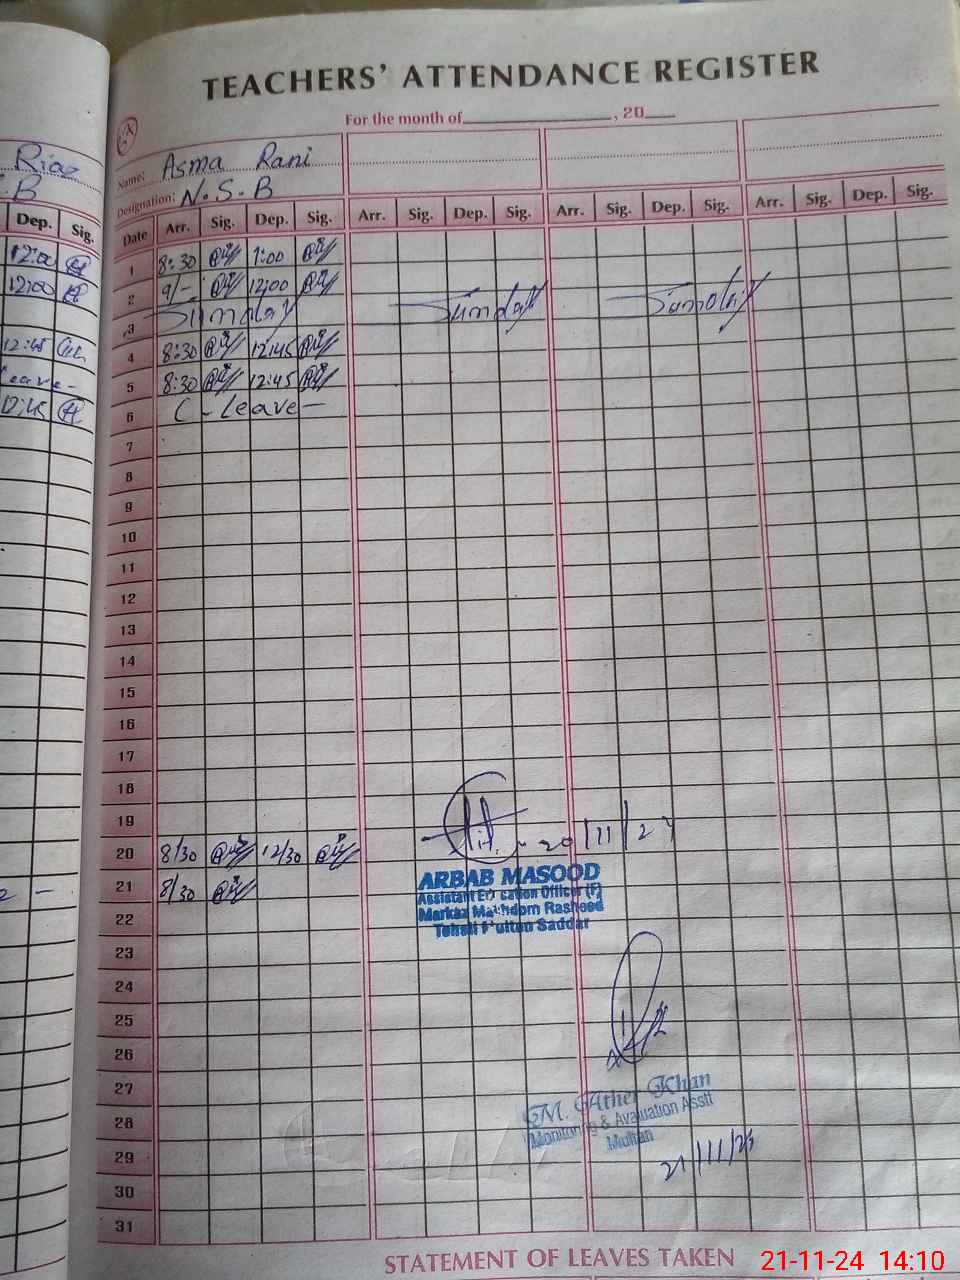 TEACHERS' ATTENDANCE REGISTER
For the month of , 20
Riaz
B
Dep. Sig.
12:00
12:00
12:45
Leave-
12:45
Name: Asma Rani
Designation: N.S.B
Date Arr. Sig. Dep. Sig. Arr. Sig. Dep. Sig. Arr. Sig. Dep. Sig. Arr. Sig. Dep. Sig.
1 8:30 1:00
2 9/- 12:00
3 Sunday Sunday Sunday
4 8:30 12:45
5 8:30 12:45
6 C-Leave-
7
8
9
10
11
12
13
14
15
16
17
18
19
20 8/30 12/30 20/11/24
21 8/30
ARBAB MASOOD
Assistant Education Officer (F)
Markaz Makhdom Rasheed
Tehsil Multan Saddar
22
23
24
25
26
27
28
29
30
31
M. Ather Khan
Monitoring & Avaluation Asstt
Multan
21/11/24
STATEMENT OF LEAVES TAKEN
21-11-24 14:10